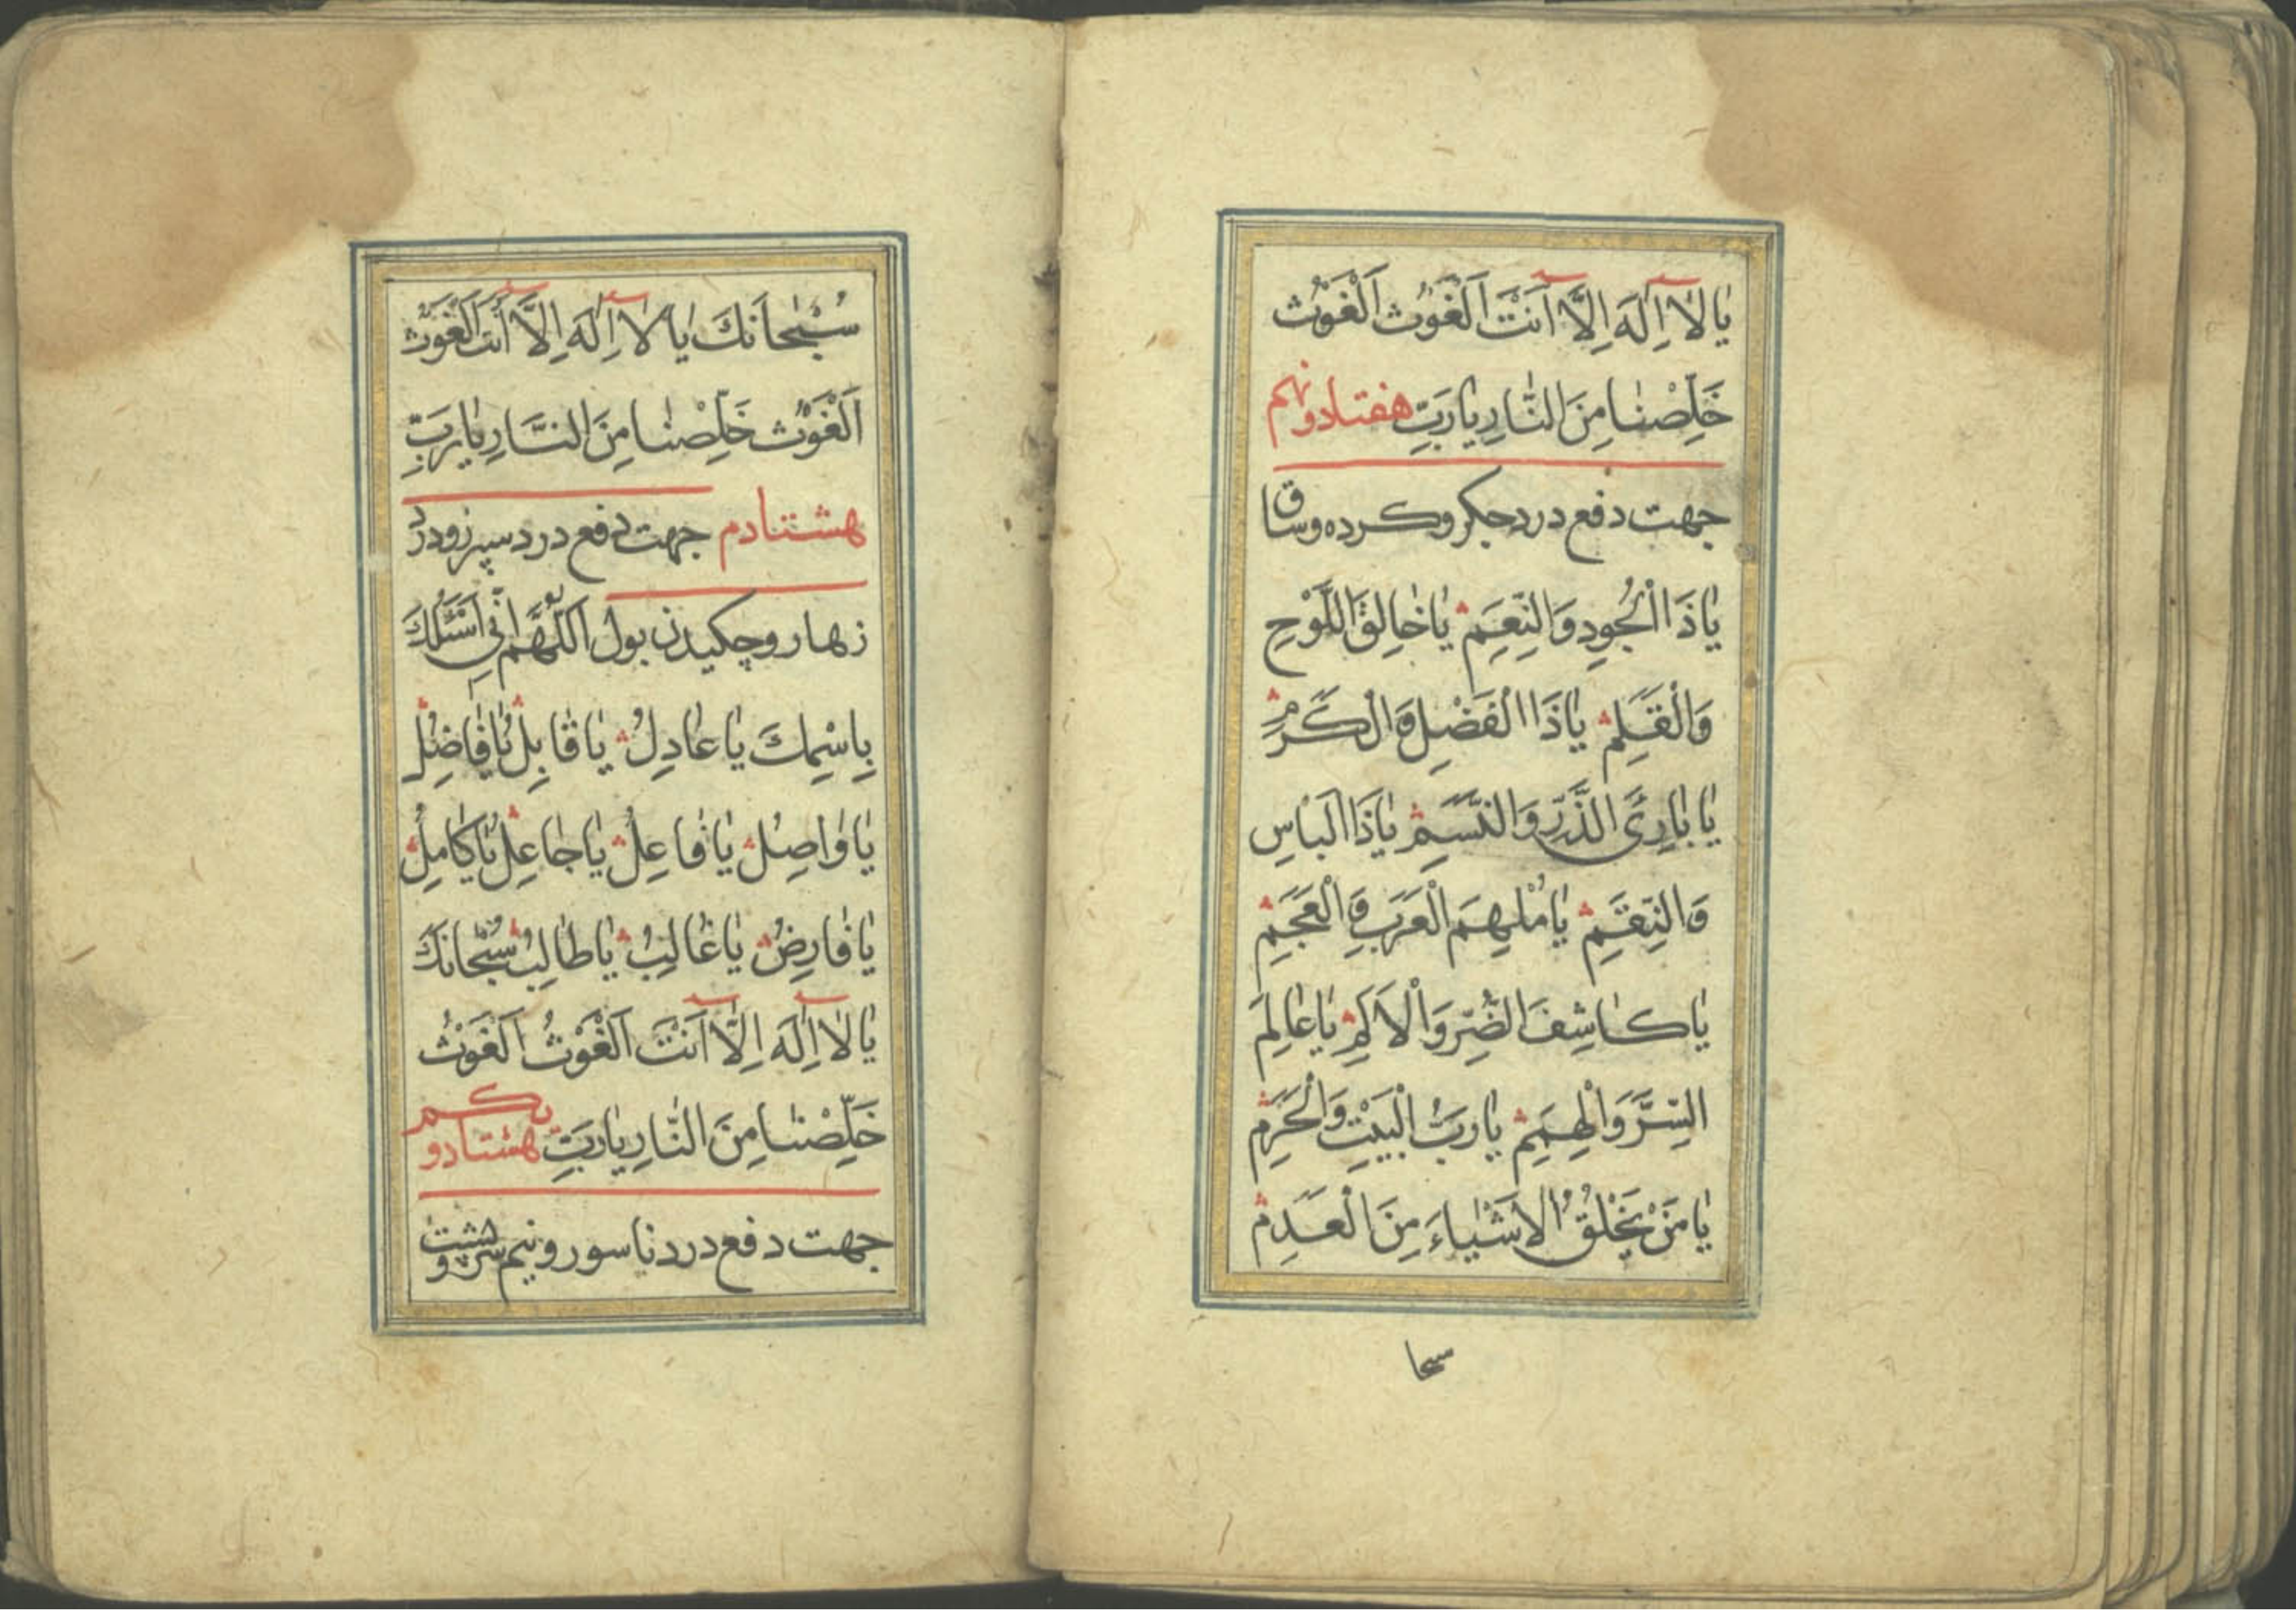 يٰا لٰا اِلٰهَ اِلَّا اَنْتَ اَلْغَوْث اَلْغَوْث
خَلِّصْنٰا مِنَ النّٰارِ يٰا رَبِّ هفتادونهم
جهت دفع درد جكر وكرده وساق
يٰا ذَا الْجُودِ وَالنِّعَمِ يٰا خٰالِقَ اللَّوْحِ
وَالْقَلَمِ يٰا ذَا الْفَضْلِ وَالْكَرَمِ
يٰا بٰارِئَ الذَّرِّ وَالنَّسَمِ يٰا ذَا الْبَاسِ
وَالنِّقَمِ يٰا مُلْهِمَ الْعَرَبِ وَالْعَجَمِ
يٰا كٰاشِفَ الضُّرِّ وَالْاَلَمِ يٰا عٰالِمَ
السِّرِّ وَالْهِمَمِ يٰا رَبَّ الْبَيْتِ وَالْحَرَمِ
يٰا مَنْ يَخْلُقُ الْاَشْيٰاءَ مِنَ الْعَدَمِ
سبحا
سُبْحٰانَكَ يٰا لٰا اِلٰهَ اِلَّا اَنْتَ الْغَوْث
اَلْغَوْث خَلِّصْنٰا مِنَ النَّارِ يٰا رَبِّ
هشتادم جهت دفع درد سپرز ودرد
زهار وچكيدن بول اَللّٰهُمَّ اِنِّي اَسْئَلُكَ
بِاسْمِكَ يٰا عٰادِلُ يٰا قٰابِلُ يٰا فٰاضِلُ
يٰا وٰاصِلُ يٰا فٰاعِلُ يٰا جٰاعِلُ يٰا كٰامِلُ
يٰا فٰارِضُ يٰا غٰالِبُ يٰا طٰالِبُ سُبْحٰانَكَ
يٰا لٰا اِلٰهَ اِلَّا اَنْتَ اَلْغَوْثُ اَلْغَوْثُ
خَلِّصْنٰا مِنَ النّٰارِ يٰا رَبِّ هشتادو يكم
جهت دفع درد ناسور ونيم سر